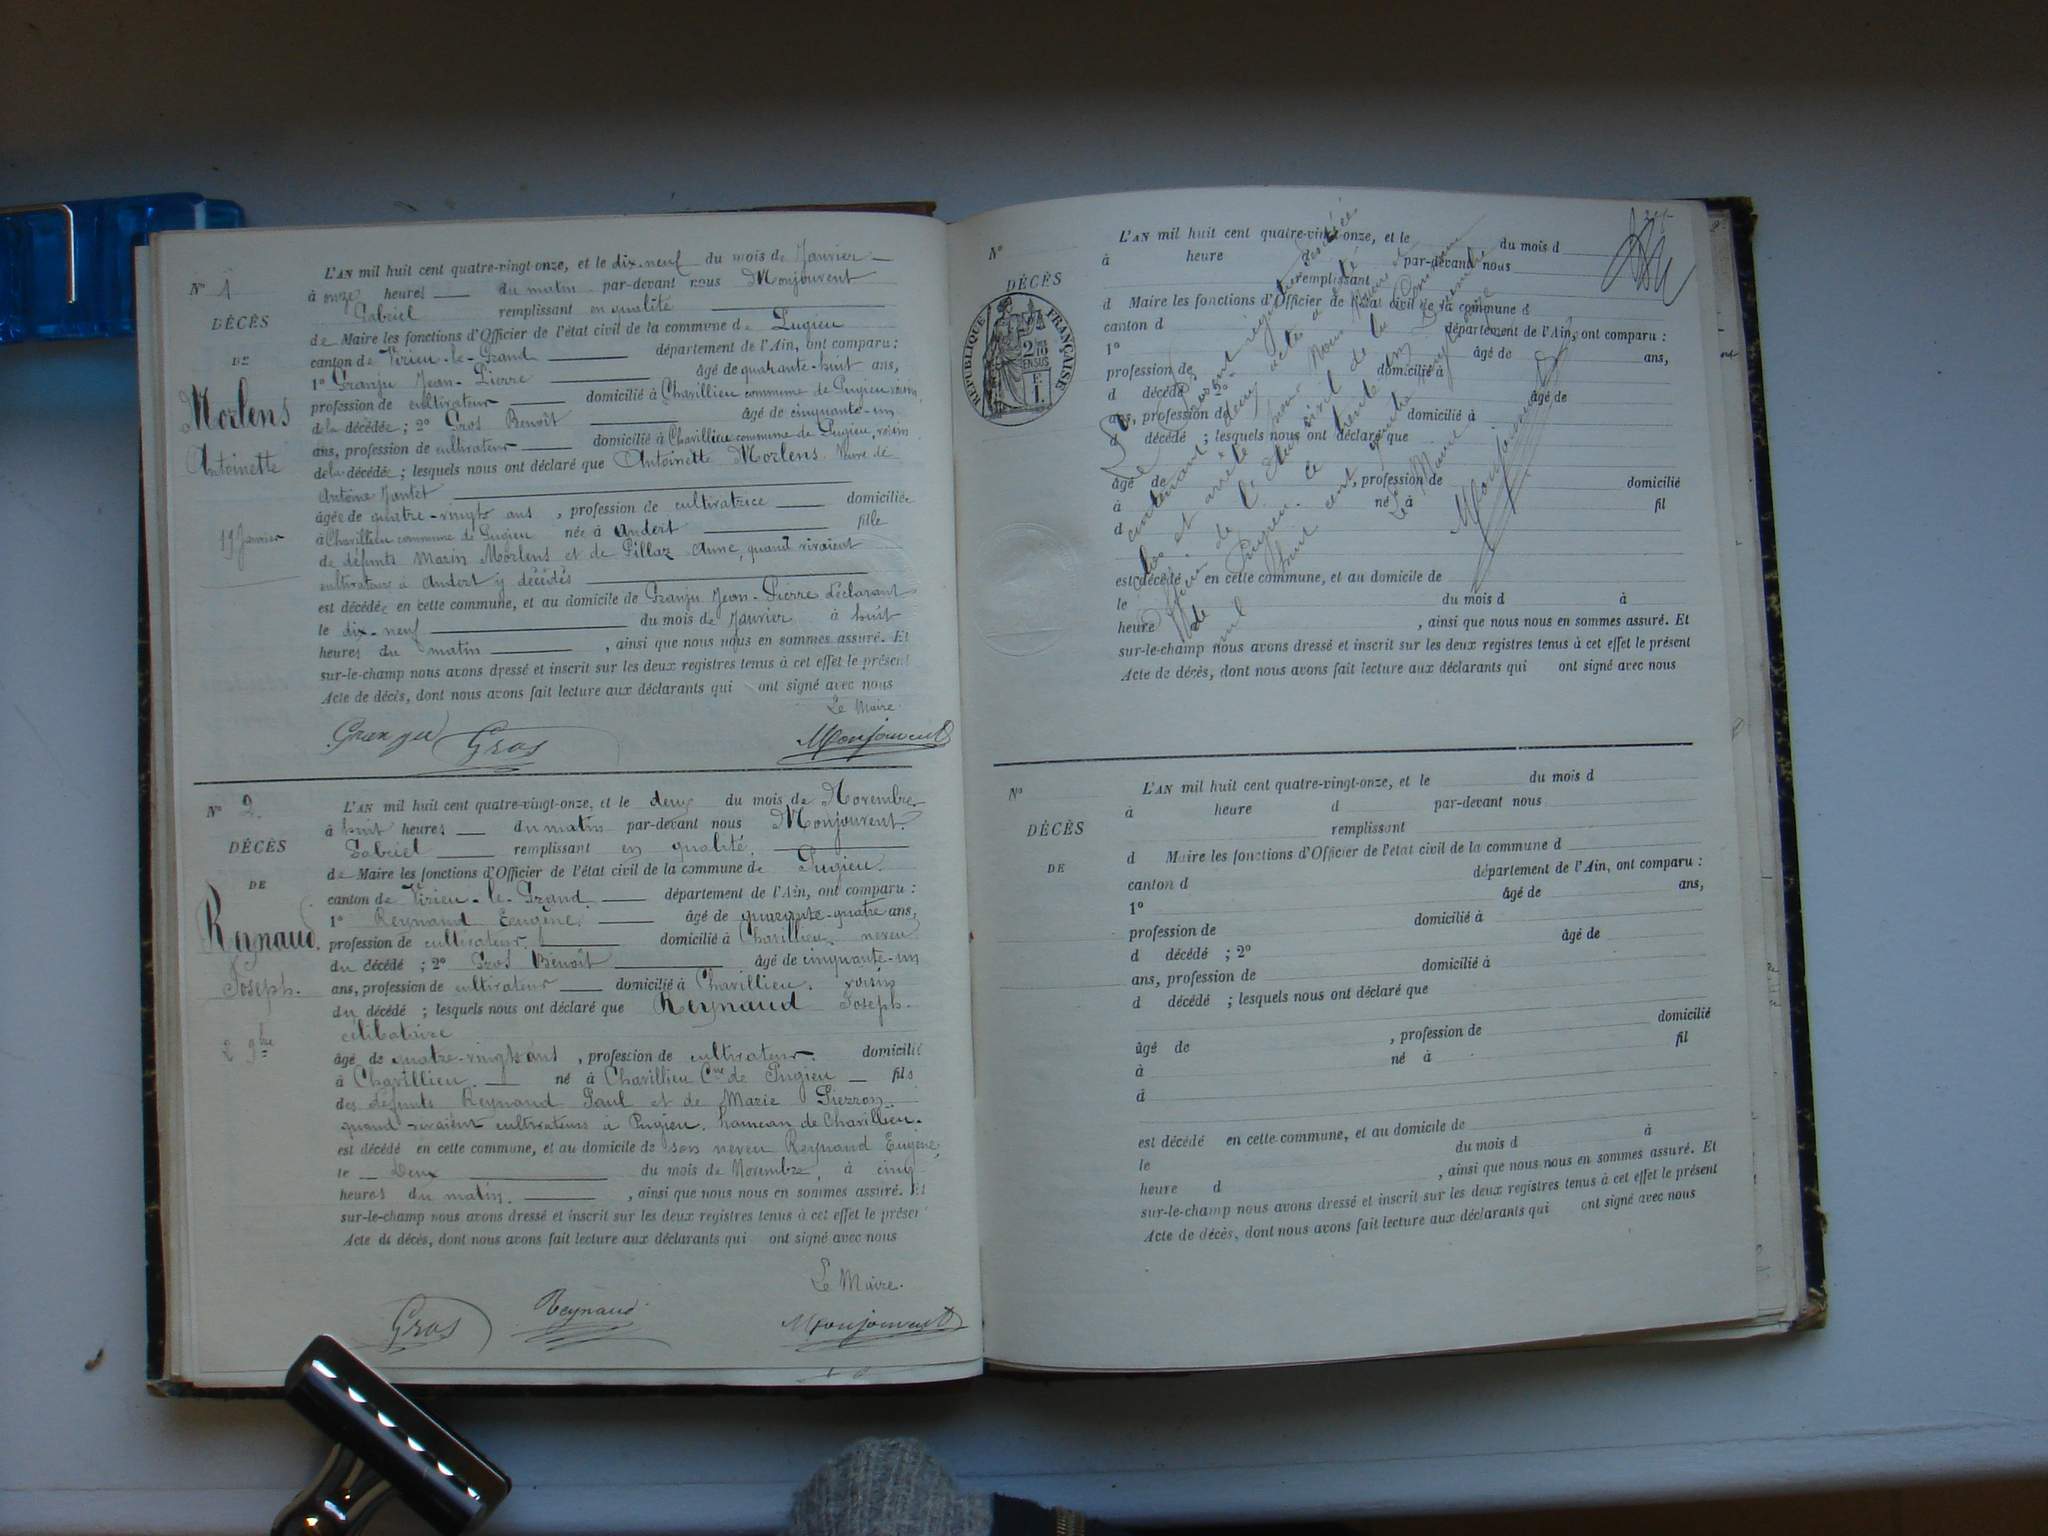 N° 1
DÉCÈS
DE
Morlens
Antoinette
19 Janvier
L'AN mil huit cent quatre-vingt-onze, et le dix-neuf du mois de Janvier
à onze heures du matin par-devant nous Monjouvent
Gabriel remplissant en qualité
de Maire les fonctions d'Officier de l'état civil de la commune de Pugieu
canton de Virieu-le-Grand département de l'Ain, ont comparu :
1° Granju Jean-Pierre âgé de quarante-huit ans,
profession de cultivateur domicilié à Chavillieu commune de Pugieu voisin
de la décédée ; 2° Gros Benoît âgé de cinquante-un
ans, profession de cultivateur domicilié à Chavillieu commune de Pugieu, voisin
de la décédée ; lesquels nous ont déclaré que Antoinette Morlens Veuve de
Antoine Jantet
âgée de quatre-vingts ans , profession de cultivatrice domiciliée
à Chavillieu commune de Pugieu née à Andert fille
de défunts Marin Morlens et de Pillaz Anne, quand vivaient
cultivateurs à Andert y décédés
est décédée en cette commune, et au domicile de Granju Jean-Pierre déclarant
le dix-neuf du mois de Janvier à huit
heures du matin , ainsi que nous nous en sommes assuré. Et
sur-le-champ nous avons dressé et inscrit sur les deux registres tenus à cet effet le présent
Acte de décès, dont nous avons fait lecture aux déclarants qui ont signé avec nous
Le Maire
Granju Gros Monjouvent
N° 2.
DÉCÈS
DE
Reynaud.
Joseph.
2 9bre
L'AN mil huit cent quatre-vingt-onze, et le deux du mois de Novembre
à huit heures du matin par-devant nous Monjouvent
Gabriel remplissant en qualité.
de Maire les fonctions d'Officier de l'état civil de la commune de Pugieu.
canton de Virieu-le-Grand. département de l'Ain, ont comparu :
1° Reynaud Eugène. âgé de quarante-quatre ans,
profession de cultivateur. domicilié à Chavillieu. neveu
du décédé ; 2° Gros Benoît âgé de cinquante-un
ans, profession de cultivateur domicilié à Chavillieu. voisin
du décédé ; lesquels nous ont déclaré que Reynaud Joseph.
célibataire
âgé de quatre-vingts ans , profession de cultivateur. domicilié
à Chavillieu. né à Chavillieu Cne de Pugieu fils
des défunts Reynaud Paul et de Marie Pierron
quand vivaient cultivateurs à Pugieu. hameau de Chavillieu.
est décédé en cette commune, et au domicile de son neveu Reynaud Eugène,
le Deux du mois de Novembre, à cinq
heures du matin. , ainsi que nous nous en sommes assuré. Et
sur-le-champ nous avons dressé et inscrit sur les deux registres tenus à cet effet le présent
Acte de décès, dont nous avons fait lecture aux déclarants qui ont signé avec nous
Le Maire.
Gros Reynaud Monjouvent
N°
DÉCÈS
RÉPUBLIQUE FRANÇAISE
2/10 EN SUS
F. 1.
L'AN mil huit cent quatre-vingt-onze, et le du mois d
à heure d par-devant nous
remplissant
d Maire les fonctions d'Officier de l'état civil de la commune d
canton d département de l'Ain, ont comparu :
1° âgé de ans,
profession de domicilié à
d décédé ; 2° âgé de
ans, profession de domicilié à
d décédé ; lesquels nous ont déclaré que
âgé de , profession de domicilié
à né à fil
d
est décédé en cette commune, et au domicile de
le du mois d à
heure d , ainsi que nous nous en sommes assuré. Et
sur-le-champ nous avons dressé et inscrit sur les deux registres tenus à cet effet le présent
Acte de décès, dont nous avons fait lecture aux déclarants qui ont signé avec nous
Le présent registre des décès
contenant deux actes a été
clos et arrêté par nous Maire
de l'état civil de la Commune
de Pugieu. ce trente un Décembre
mil huit cent quatre vingt onze
Le Maire
Monjouvent
N°
DÉCÈS
DE
L'AN mil huit cent quatre-vingt-onze, et le du mois d
à heure d par-devant nous
remplissant
d Maire les fonctions d'Officier de l'état civil de la commune d
canton d département de l'Ain, ont comparu :
1° âgé de ans,
profession de domicilié à
d décédé ; 2° âgé de
ans, profession de domicilié à
d décédé ; lesquels nous ont déclaré que
âgé de , profession de domicilié
à né à fil
d
est décédé en cette commune, et au domicile de
le du mois d à
heure d , ainsi que nous nous en sommes assuré. Et
sur-le-champ nous avons dressé et inscrit sur les deux registres tenus à cet effet le présent
Acte de décès, dont nous avons fait lecture aux déclarants qui ont signé avec nous